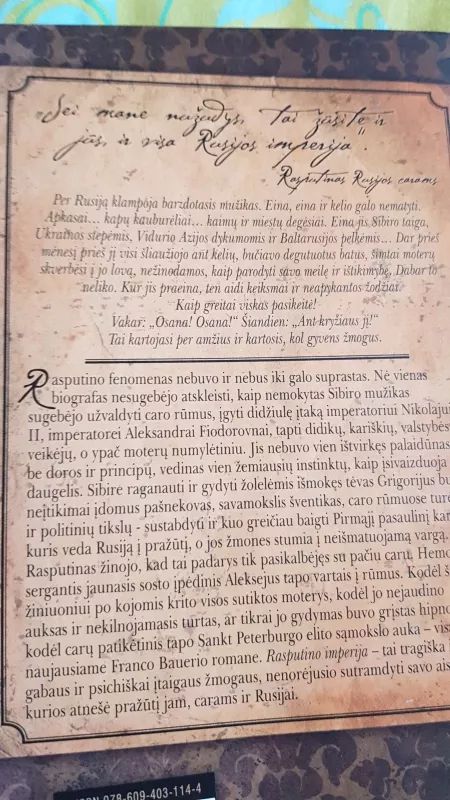 „Jei mane nužudys, tai žūsite ir
jūs, ir visa Rusijos imperija“.
Rasputinas Rusijos carams
Per Rusiją klampója barzdotasis mužikas. Eina, eina ir kelio galo nematyti.
Apkasai... kapų kauburėliai... kaimų ir miestų degėsiai. Eina jis Sibiro taiga,
Ukrainos stepėmis, Vidurio Azijos dykumomis ir Baltarusijos pelkėmis... Dar prieš
mėnesį prieš jį visi šliaužiojo ant kelių, bučiavo degutuotus batus, šimtai moterų
skverbėsi į jo lovą, nežinodamos, kaip parodyti savo meilę ir ištikimybę. Dabar to
neliko. Kur jis praeina, ten aidi keiksmai ir neapykantos žodžiai.
Kaip greitai viskas pasikeitė!
Vakar: „Osana! Osana!“ Šiandien: „Ant kryžiaus jį!“
Tai kartojasi per amžius ir kartosis, kol gyvens žmogus.
Rasputino fenomenas nebuvo ir nebus iki galo suprastas. Nė vienas
biografas nesugebėjo atskleisti, kaip nemokytas Sibiro mužikas
sugebėjo užvaldyti caro rūmus, įgyti didžiulę įtaką imperatoriui Nikolajui
II, imperatorei Aleksandrai Fiodorovnai, tapti didikų, kariškių, valstybės
veikėjų, o ypač moterų numylėtiniu. Jis nebuvo vien ištvirkęs palaidūnas
be doros ir principų, vedinas vien žemiausių instinktų, kaip įsivaizduoja
daugelis. Sibire raganauti ir gydyti žolelėmis išmokęs tėvas Grigorijus bu
neįtikimai įdomus pašnekovas, savamokslis šventikas, caro rūmuose turė
ir politinių tikslų - sustabdyti ir kuo greičiau baigti Pirmąjį pasaulinį kar
kuris veda Rusiją į pražūtį, o jos žmones stumia į neišmatuojamą vargą.
Rasputinas žinojo, kad tai padarys tik pasikalbėjęs su pačiu caru. Hemo
sergantis jaunasis sosto įpėdinis Aleksejus tapo vartais į rūmus. Kodėl š
žiniuoniui po kojomis krito visos sutiktos moterys, kodėl jo nejaudino
auksas ir nekilnojamasis turtas, ar tikrai jo gydymas buvo grįstas hipno
kodėl carų patikėtinis tapo Sankt Peterburgo elito sąmokslo auka – vis
naujausiame Franco Bauerio romane. Rasputino imperija – tai tragiška
gabaus ir psichiškai įtaigaus žmogaus, nenorėjusio sutramdyti savo ais
kurios atnešė pražūtį jam, carams ir Rusijai.
ISBN 978-609-403-114-4